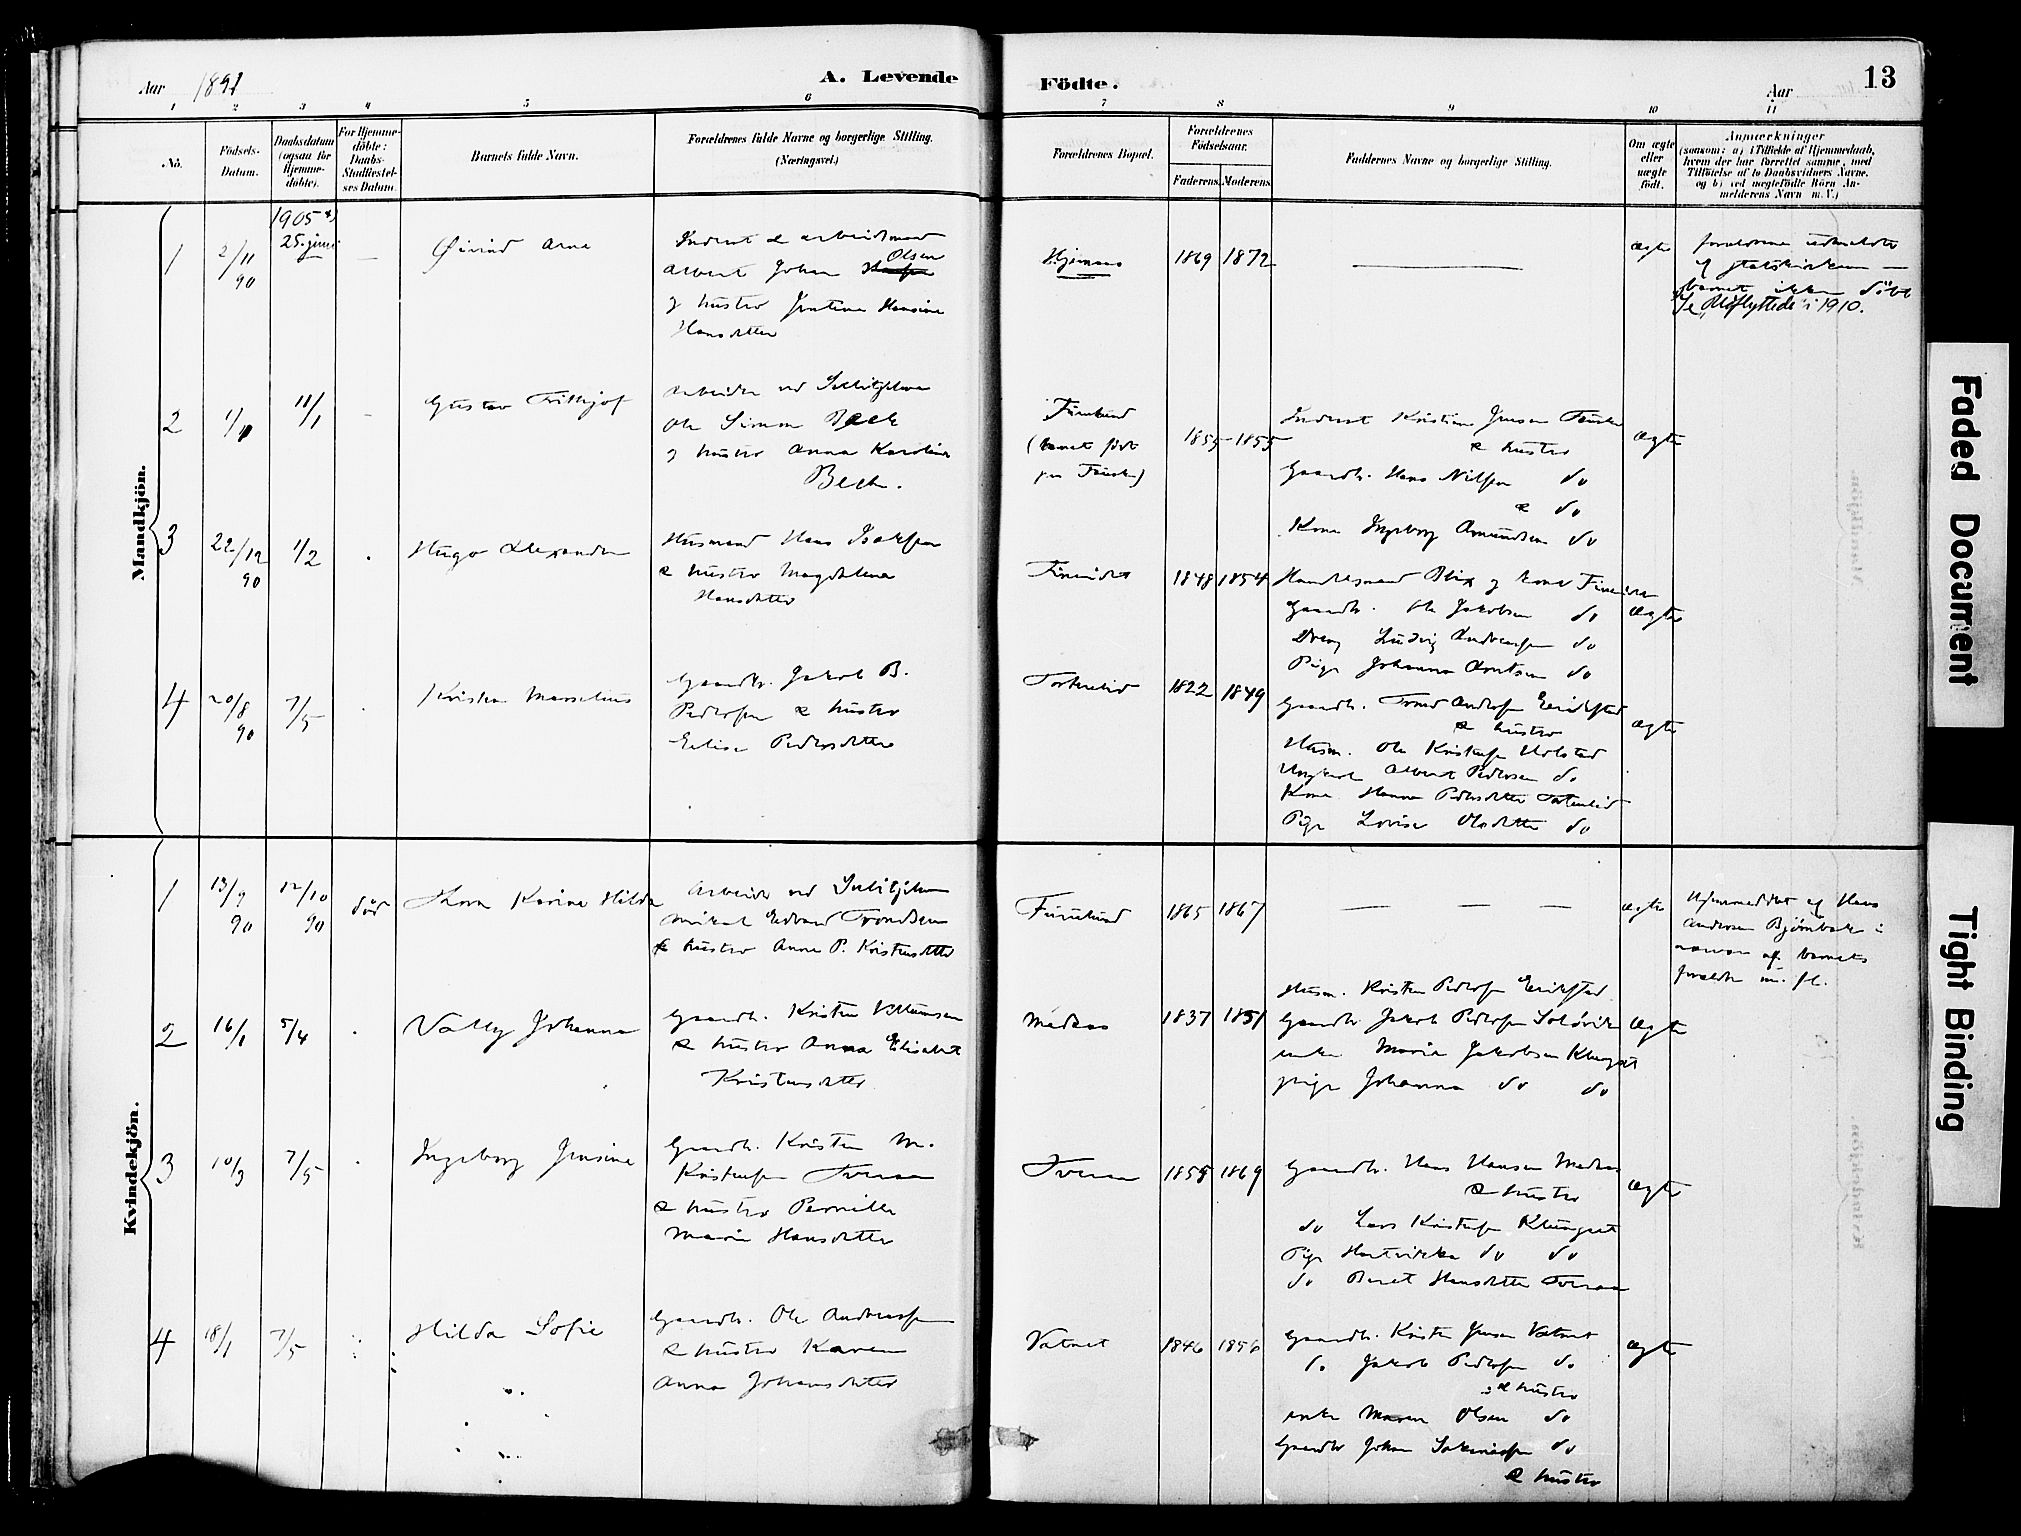 Aar 1891
A. Levende
Födte.
Aar
13
1 2 3 4 5 6 7 8 9 10 11
No.
Födsels-
Datum.
Daabsdatum
(ogsaa for
Hjemme-
döbte).
For Hjemme-
döbte:
Daabs-
Stadfæstel-
ses Datum.
Barnets fulde Navn.
Forældrenes fulde Navne og borgerlige Stilling.
(Næringsvei.)
Forældrenes Bopæl.
Forældrenes
Födselsaar.
Faderens.
Moderens.
Faddernes Navne og borgerlige Stilling.
Om ægte
eller
uægte
födt.
Anmærkninger
(saasom: a) i Tilfælde af Hjemmedaab,
hvem der har forrettet samme, med
Tilföielse af to Daabsvidners Navne.
og b) ved uægtefödte Börn An-
melderens Navn m.V.)
Mandkjön.
1
2/11
90
1905
25. juni
Øivind Arne
Inderst & arbeidsmand
Albert Johan Olsen
og hustro Jentine Hansine
Hansdatter
Hjemaas
1869 1872
ægte
forældrene udmeldte
af statskirken —
barnet ikke döbt
Se "Udflyttede" i 1910.
2
11/1
Gustav Frithjof
Arbeider ved Sulitjelma
Ole Simon Beck
og hustro Anna Karolina
Beck.
Furulund
(barnet født
paa Fauske)
1855-1855
Inderst Kristian Jensen Fauske
& hustro
Gaardb. Hans Nilssen do
& do
Kone Ingeborg Amundsen do
ægte
3
22/12
90
1/2
Hugo Alexander
Husmand Hans Isaksen
& hustro Magdalena
Hansdatter
Finneidet
1848 1854
Handelsmand Blix og kone Finneidet
Gaardb. Ole Jakobsen do
Dreng Ludvig Andreassen do
Pige Johanna Arntsen do
ægte
4
20/8
90
7/5
Kristen Marselius
Gaardb. Jakob B.
Pedersen & hustro
Elise Pedersdatter
1822 1849
Gaardb. Trond Andersen Erikstad
& hustro
Husm. Ole Kristensen Holstad
Ungkarl Albert Pedersen do
Kone Hanna Pedersdatter
Pige Lovise Olsdatter do
ægte
Kvindekjön.
1
13/9
90
12/10
90
död
Hava Karine Hilda
Arbeider ved Sulitjelma
Mikal Edvard Trondsen
& hustro Anna P. Kristensdatter
Furulund
1865 1867
— — —
ægte
Hjemmedöbt af Hans
Andersen Bjørnbak i
nærvær af barnets
forældre m. fl.
2
16/1
5/4
Valby Johanna
Gaardb. Kristen Villumsen
& hustro Anna Elisabet
Kristensdatter
Medaas
1837 1851
Husm. Kristen Pedersen Erikstad
Gaardb. Jakob Pedersen
enke Maria Jakobsen Klungset
pige Johanna do do
ægte
3
10/3
7/5
Ingeborg Jensine
Gaardb. Kristen M.
Kristensen Tveraa
& hustro Pernille
Marie Hansdatter
Tveraa
1858 1869
Gaardb. Hans Hansen Medaas
& hustro
do Lars Kristensen Klungset
Pige Hartvikka do do
do Beret Hansdatter Tveraa
ægte
4
18/1
7/5
Hilda Sofie
Gaardb. Ole Andreassen
& hustro Karen
Anna Johansdatter
Vatnet
1846 1856
Gaardb. Kristen Jensen Vatnet
do Jakob Pedersen do
& hustro
enke Maren Olsen do
Gaardb. Johan Sakariassen do
& hustro
ægte
Faded Document
Tight Binding